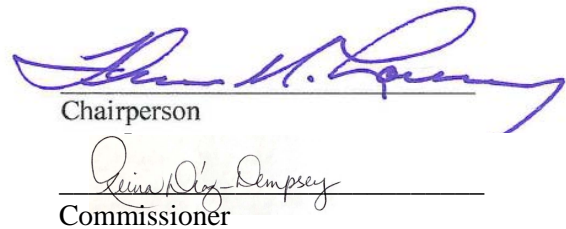 Chairperson
Reina Díaz-Dempsey
Commissioner